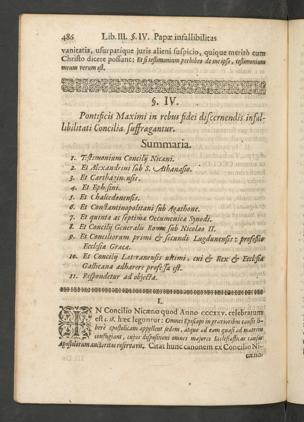 486 Lib. III. §. IV. Papæ infallibilitas
vanitatis, usurpatique juris alieni suspicio, quique meritò cum
Christo dicere possunt: Et si testimonium perhibeo de me ipso, testimonium
meum verum est.
§. IV.
Pontificis Maximi in rebus fidei discernendis infal-
libilitati Concilia suffragantur.
Summaria.
1. Testimonium Concilij Nicæni.
2. Et Alexandrini sub S. Athanasio.
3. Et Carthaginensis.
4. Et Ephesini.
5. Et Chalcedonensis.
6. Et Constantinopolitani sub Agathone.
7. Et quinta ac septima Oecumenica Synodi.
8. Et Concilij Generalis Romæ sub Nicolao II.
9. Et Conciliorum primi & secundi Lugdunensis: professio
Ecclesiæ Græcæ.
10. Et Concilij Lateranensis ultimi, cui & Rex & Ecclesia
Gallicana adhærere professa est.
11. Respondetur ad objecta.
I.
IN Concilio Nicæno quod Anno CCCXXV. celebratum
est hæc leguntur: Omnes Episcopi in
berè apostolicam appellent sedem, atque ad eam quasi ad matrem
confugiant, cujus dispositioni omnes majores Ecclesiasticas causas
Apostolorum auctoritas reservavit. Citat hunc canonem ex Concilio Ni-
cæno